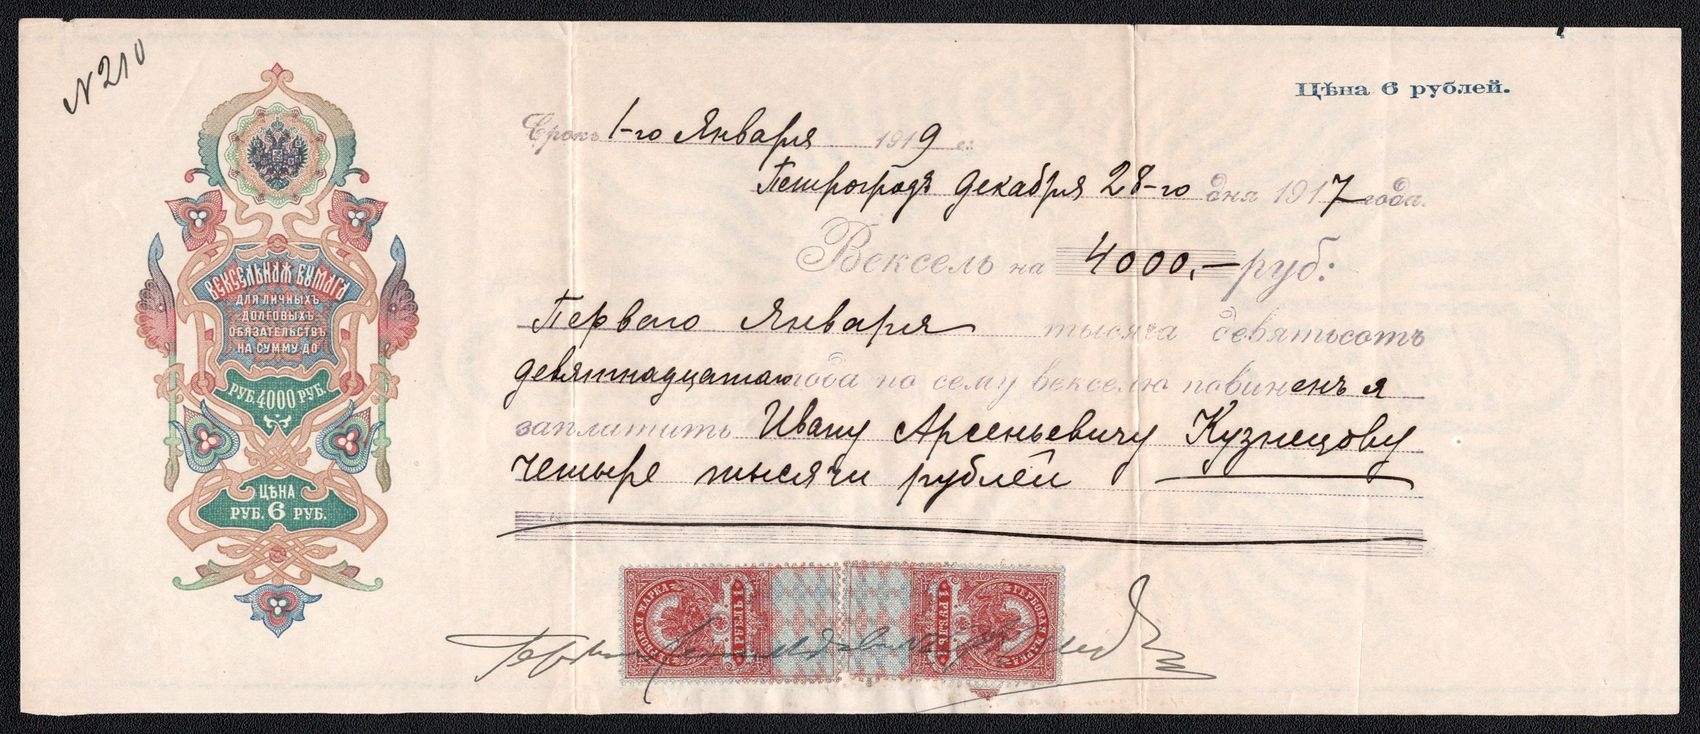 N 210
Цѣна 6 рублей.
Срокъ 1-го Января 1919 г.
Петроградъ декабря 28-го дня 1917 года.
Вексель на 4000,— руб:
Перваго Января тысяча девятьсотъ
девятнадцатаго года по сему векселю повиненъ я
заплатить Ивану Арсеньевичу Кузнецову
четыре тысячи рублей
ВЕКСЕЛЬНАЯ БУМАГА
ДЛЯ ЛИЧНЫХЪ
ДОЛГОВЫХЪ
ОБЯЗАТЕЛЬСТВЪ
НА СУММУ ДО
РУБ. 4000 РУБ.
ЦѢНА
РУБ. 6 РУБ.
ГЕРБОВАЯ МАРКА
1 РУБЛЬ 1
1 РУБЛЬ 1
ГЕРБОВАЯ МАРКА